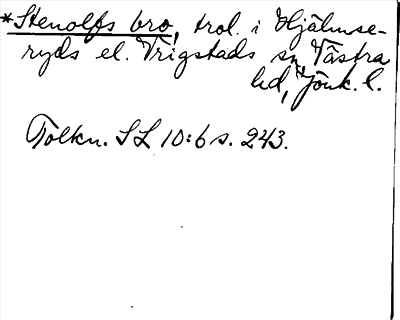 *Stenolfs bro, trol. i Hjälmse-
ryds el. Vrigstads sn Västra
hd, Jönk. l.
Tolkn. SL 10:6 s. 243.